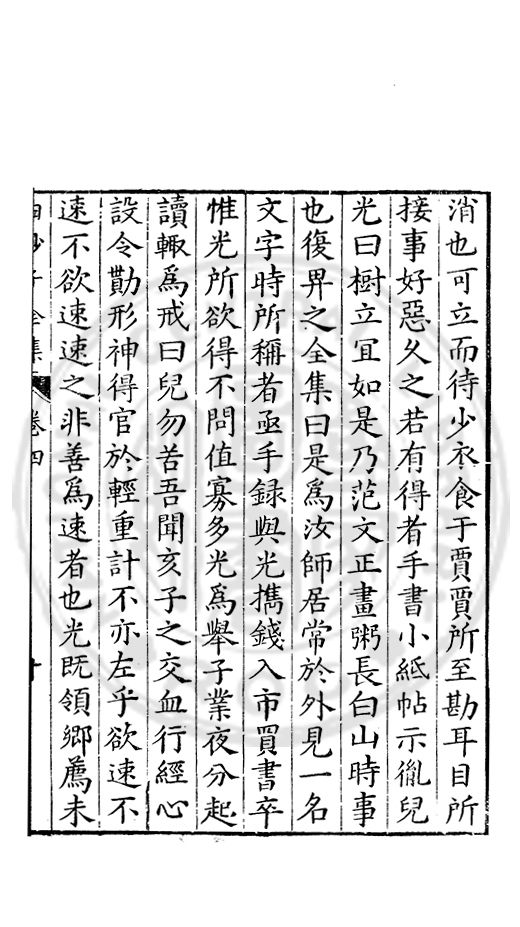 消也可立而待少衣食于賈賈所至勘耳目所
接事好惡久之若有得者手書小紙帖示胤兒
光曰樹立冝如是乃范文正畫粥長白山時事
也復畀之全集曰是爲汝師居常於外見一名
文字時所稱者亟手録與光擕錢入市買書卒
惟光所欲得不問值寡多光爲舉子業夜分起
讀輙爲戒曰兒勿苦吾聞亥子之交血行經心
設令勩形神得官於輕重計不亦左乎欲速不
速不欲速速之非善爲速者也光既領鄉薦未
子全集 卷四